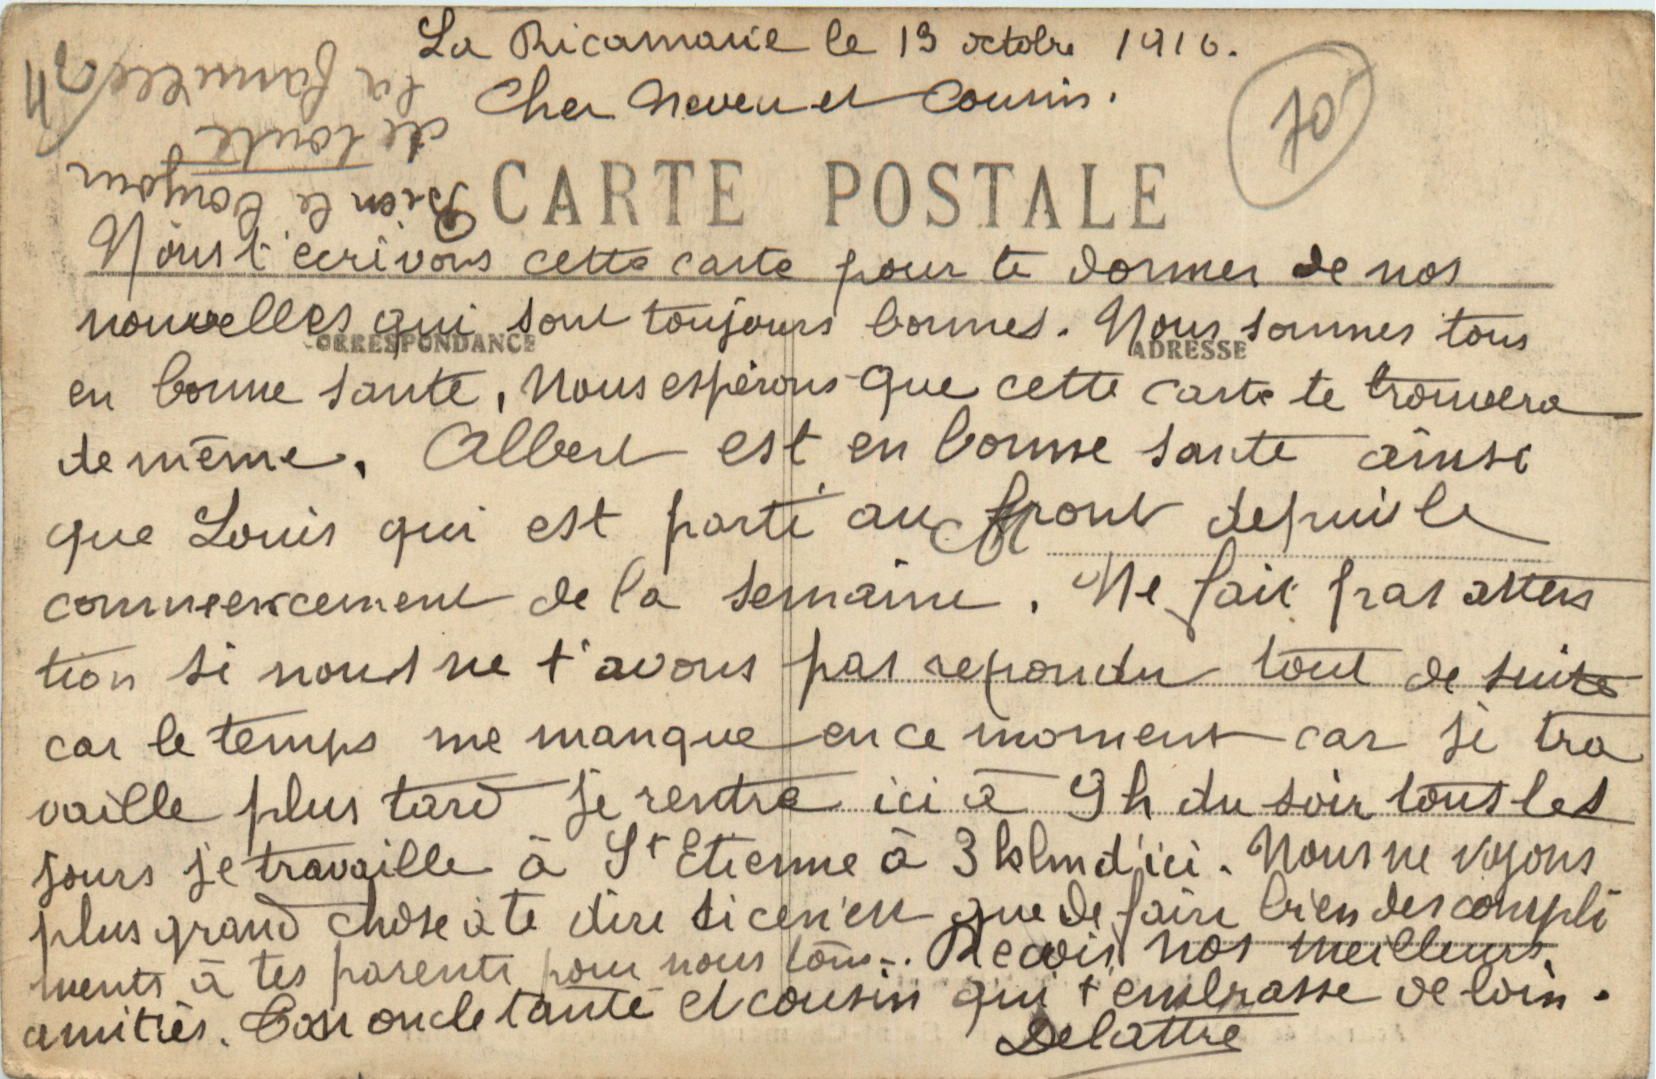 La Ricamarie le 13 octobre 1916.
Cher Neveu et Cousin.
70
Bien le bonjour
de toute
la famille
CARTE POSTALE
Nous t'ecrivons cette carte pour te donner de nos
nouvelles qui sont toujours bonnes. Nous sommes tous
CORRESPONDANCE
ADRESSE
en bonne sante, Nous espérons que cette carte te trouvera
de même. Albert est en bonne sante ainsi
que Louis qui est parti au front depuis le
commencement de la semaine. Ne fait pas atten
tion si nous ne t'avons pas repondu tout de suite
car le temps me manque en ce moment car je tra
vaille plus tard je rentre ici à 9h du soir tous les
jours je travaille à St Etienne à 3 klm d'ici. Nous ne voyons
plus grand chose à te dire si ce n'est que de faire bien des compli
ments à tes parents pour nous tous. Recois nos meilleurs
amitiés. Ton oncle tante et cousin qui t'embrasse de loin.
Delattre